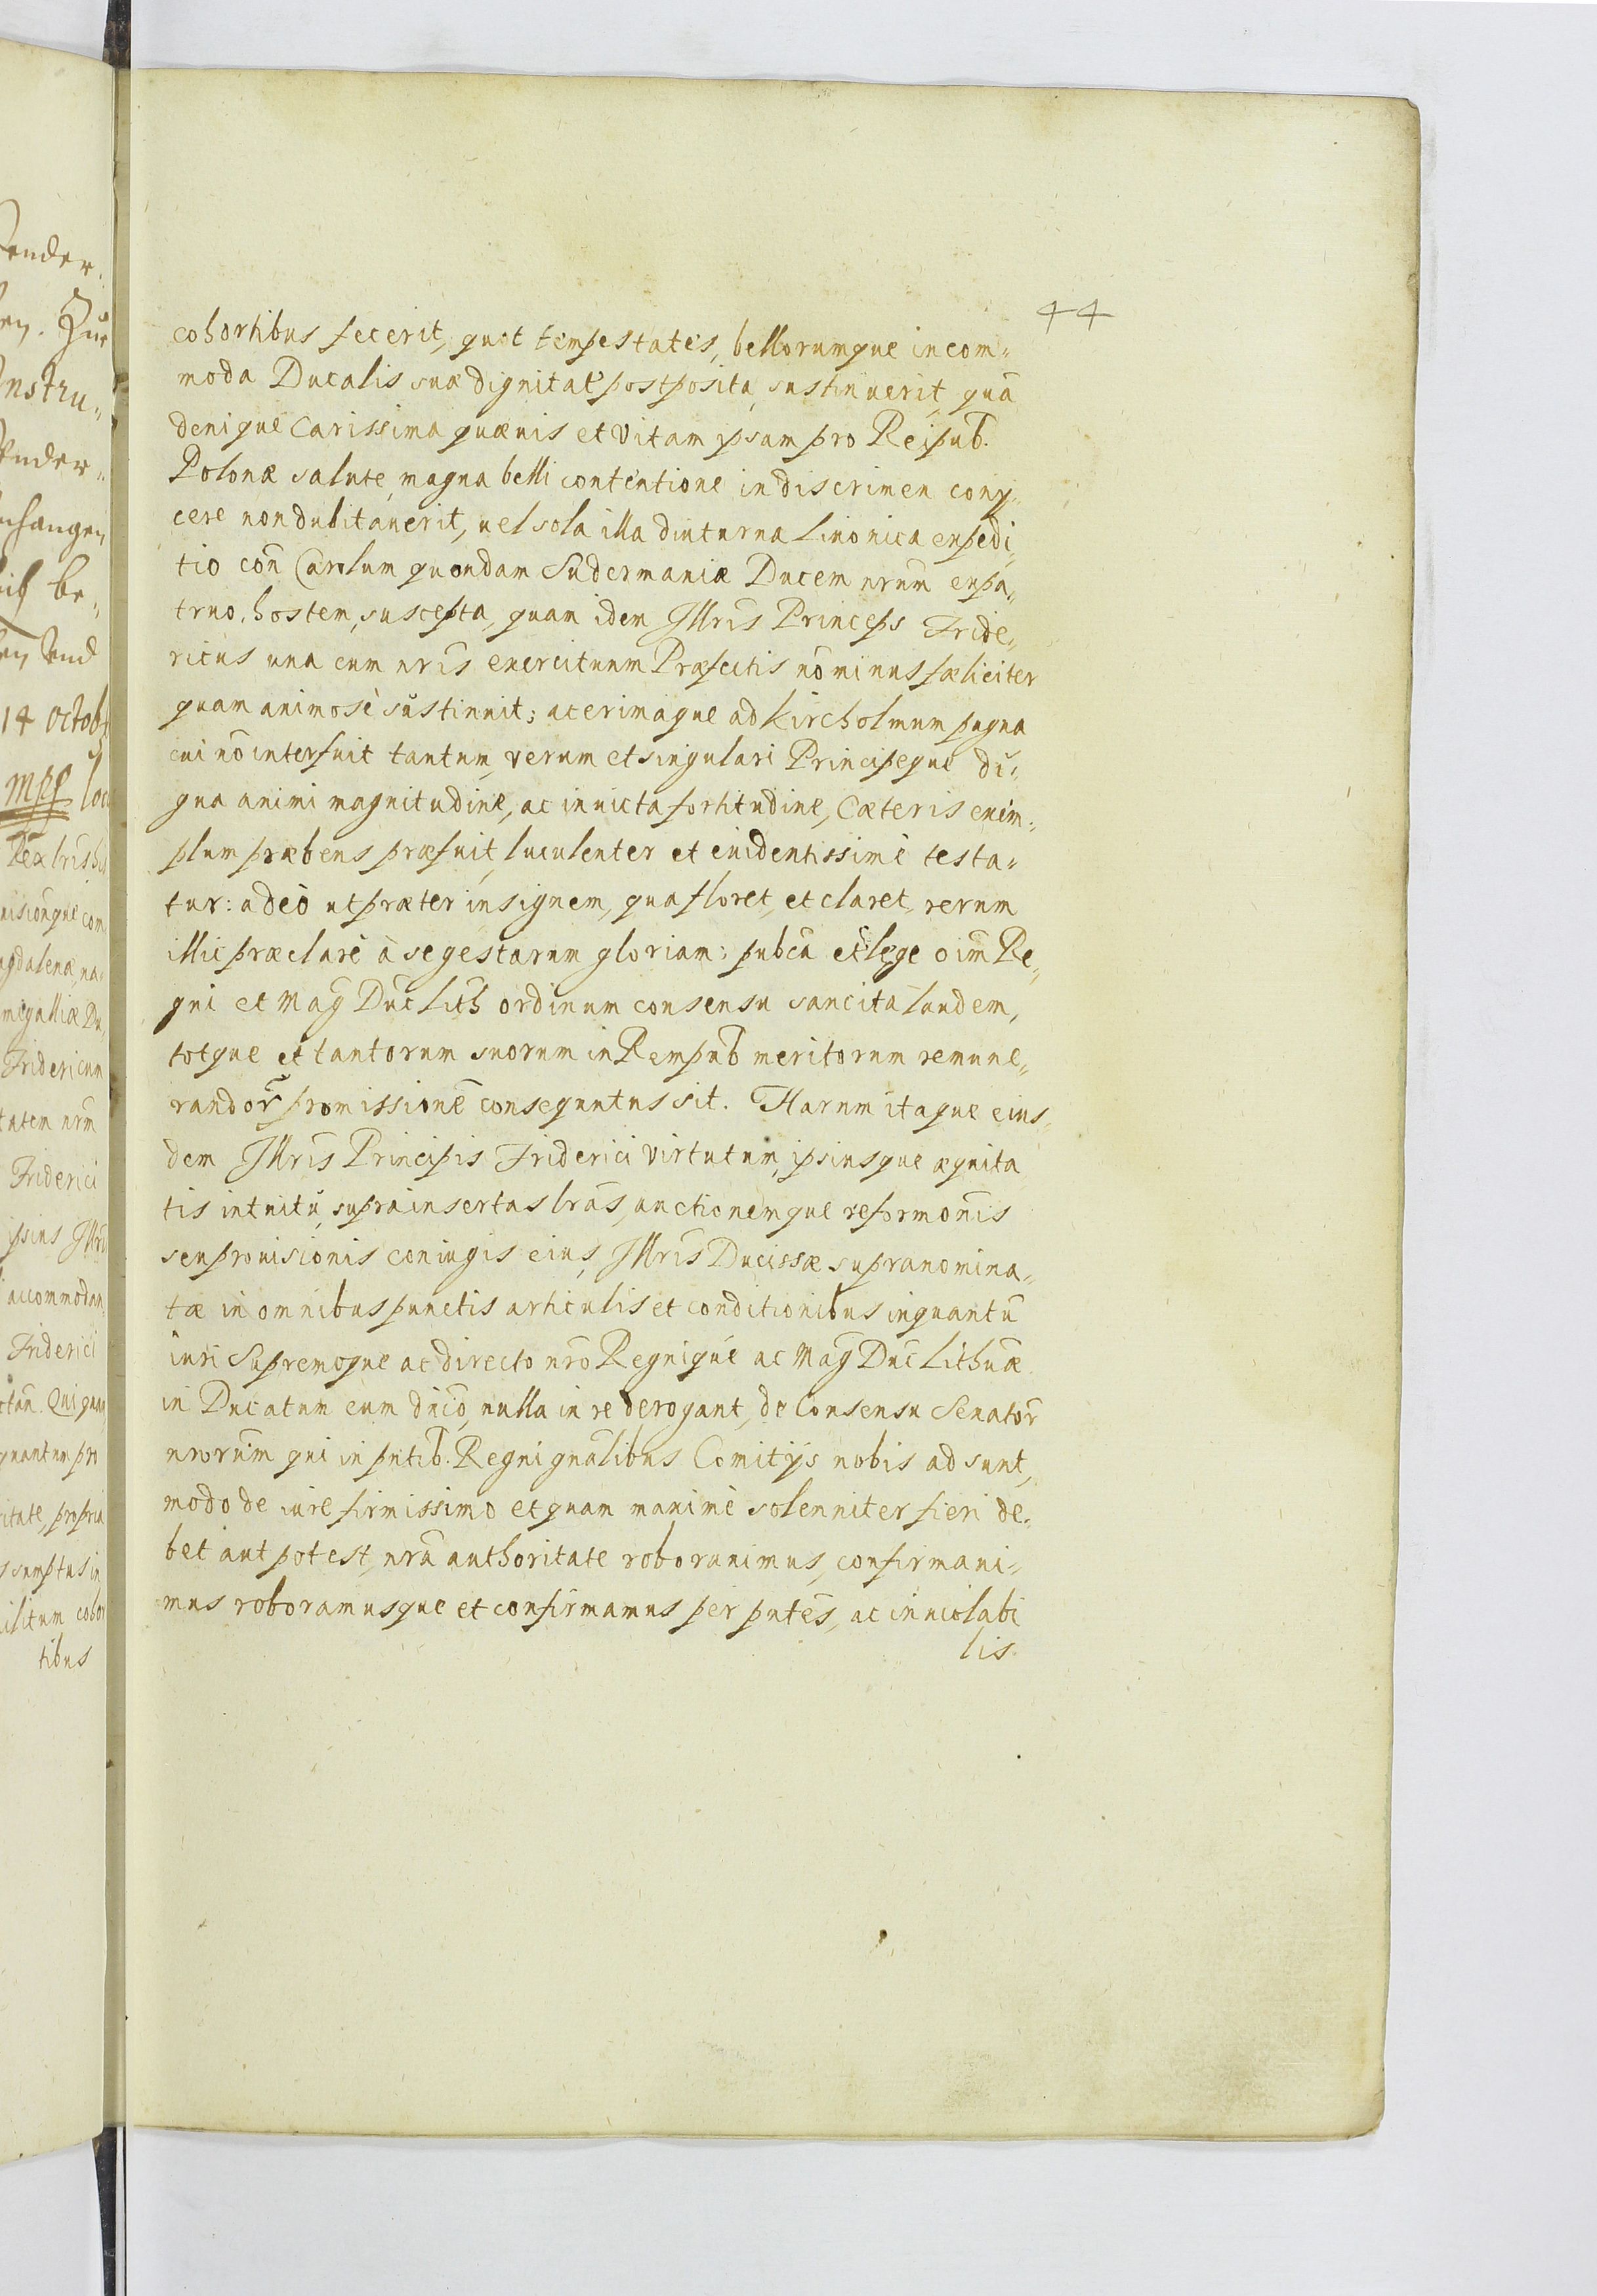 44
cohortibus fecerit, quot tempestates, bellorumque incom=
moda Ducalis suæ dignitate postposita, sustinuerit, quā
denique Carissima quæuis et vitam ipsam pro Reipub.
Polonæ salute, magna belli contentione in discrimen conij,,
cere non dubitauerit, uel sola illa diuturna Liuonica expedi,,
tio con̄ Carolum quondam Sudermaniæ Ducem nrum̄ ex pa,,
truo, hostem, suscepta, quam idem Illris Princeps Fride,,
ricus una cum nris̄ exercituum Præfectis nō minus fæliciter
quam animosè sustinuit; acerimaque ad Kircholmum pugna
cui nō interfuit tantum, verum et singulari Principeque di=
gna animi magnitudine, ac inuicta fortitudine, Cæteris exem=
plum præbens præfuit, luculenter et euidentissimè testa=
tur: adeò ut præter insignem, qua floret, et claret, rerum
illic præclarè à se gestarum gloriam: pubcā et lege oim̄ Re,,
gni et Maḡ Duc̄ Lith̄ ordinum consensu sancita laudem,
totque et tantorum suorum in Rempub̄ meritorum remune,,
randor̄ promissionē consequutus sit. Harum itaque eius,,
dem Illris̄ Principis Friderici virtutum, ipsiusque æquita
tis intuitu, suprainsertas lrās, auctionemque reformōnis
seu prouisionis coniugis eius, Illris̄ Ducissæ supranomina,,
tæ in omnibus punctis articulis et conditionibus inquantū
iuri Supremoque ac directo nrō Regnique ac Maḡ Duc̄ Lithuæ
in Ducatum eum dn̄io, nulla in re derogant, de Consensu Senator̄
nrorum̄ qui in pntib̄. Regni gnālibus Comitijs nobis adsunt,
modo de iure firmissimo et quam maximè solenniter fieri de=
bet aut potest, nrā authoritate roborauimus, confirmaui=
mus roboramusque et confirmamus per pntēs, ac inuiolabi
lis
14 octob
mpp
Friderici
accommodan
Friderici
tibus